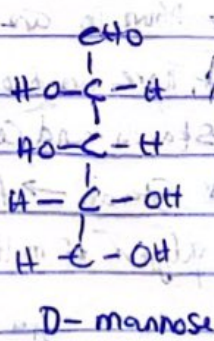 CHO
HO-C-H
HO-C-H
H-C-OH
H-C-OH
D-mannose